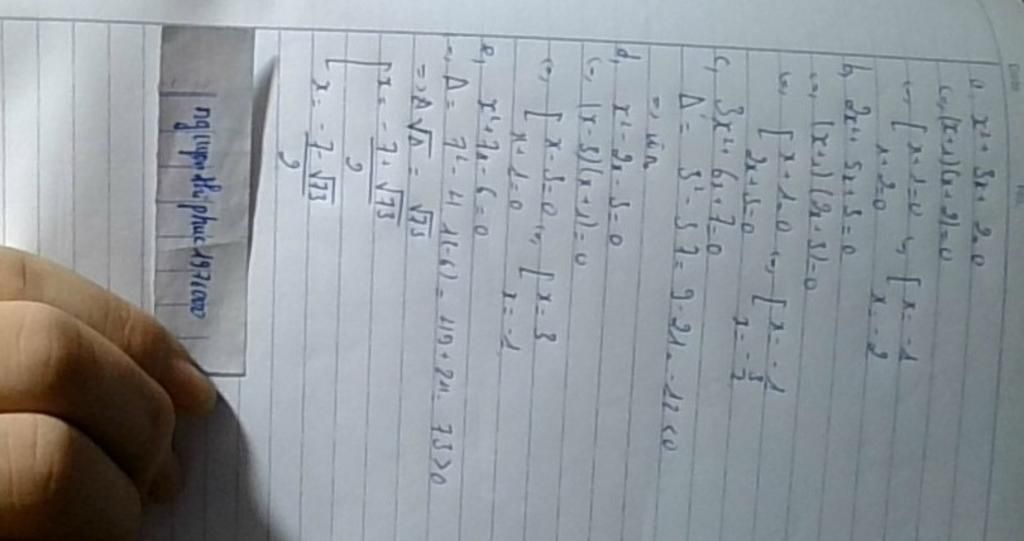 a, x² + 3x + 2 = 0
<=> (x+1)(x+2) = 0
<=> [ x+1=0 <=> [ x = -1
x+2=0 x = -2
b, 2x² + 5x + 3 = 0
<=> (x+1)(2x+3) = 0
<=> [ x+1=0 <=> [ x = -1
2x+3=0 x = -3/2
c, 3x² + 6x + 7 = 0
Δ' = 3² - 3.7 = 9 - 21 = -12 < 0
=>
d, x² - 2x - 3 = 0
<=> (x-3)(x+1) = 0
<=> [ x-3=0 <=> [ x = 3
x+1=0 x = -1
e, x² + 7x - 6 = 0
=> Δ = 7² - 4.1(-6) = 49 + 24 = 73 > 0
=> √Δ = √73
[ x = -7+√73 / 2
x = -7-√73 / 2
nguyenthiphuc1971000